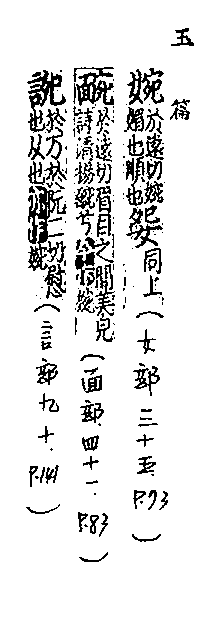 玉篇
婉於遠切婉媚也順也㛄同上(女部三十五. P.93)
䩊於遠切眉目之間美皃詩清揚婉兮今作婉(面部.四十一. P.83)
䛷於万於阮二切慰也从也今作婉(言部九十. P.141)